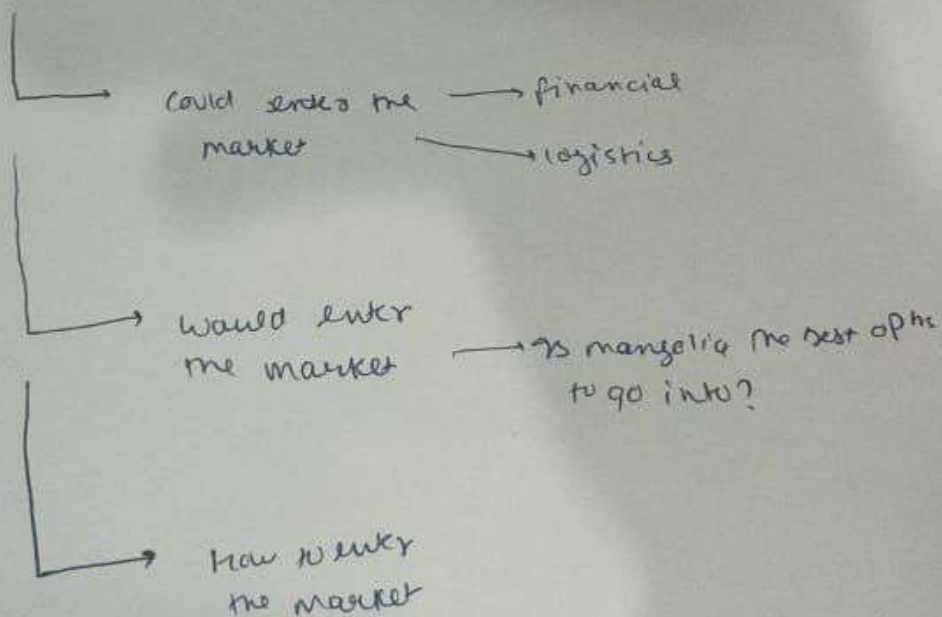 could enter the → financial
market → logistics
would enter
the market → Is mangolia the best optn
to go into?
How to enter
the market